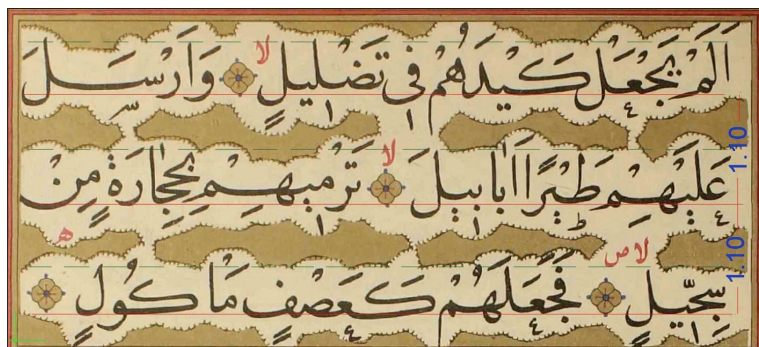 اَلَمْ يَجْعَلْ كَيْدَهُمْ فِى تَضْلِيلٍ لا وَاَرْسَلَ
عَلَيْهِمْ طَيْرًا اَبَابِيلَ لا تَرْمِيهِمْ بِحِجَارَةٍ مِنْ 1.10
سِجِّيلٍ لا ص فَجَعَلَهُمْ كَعَصْفٍ مَأْكُولٍ ه 1.10